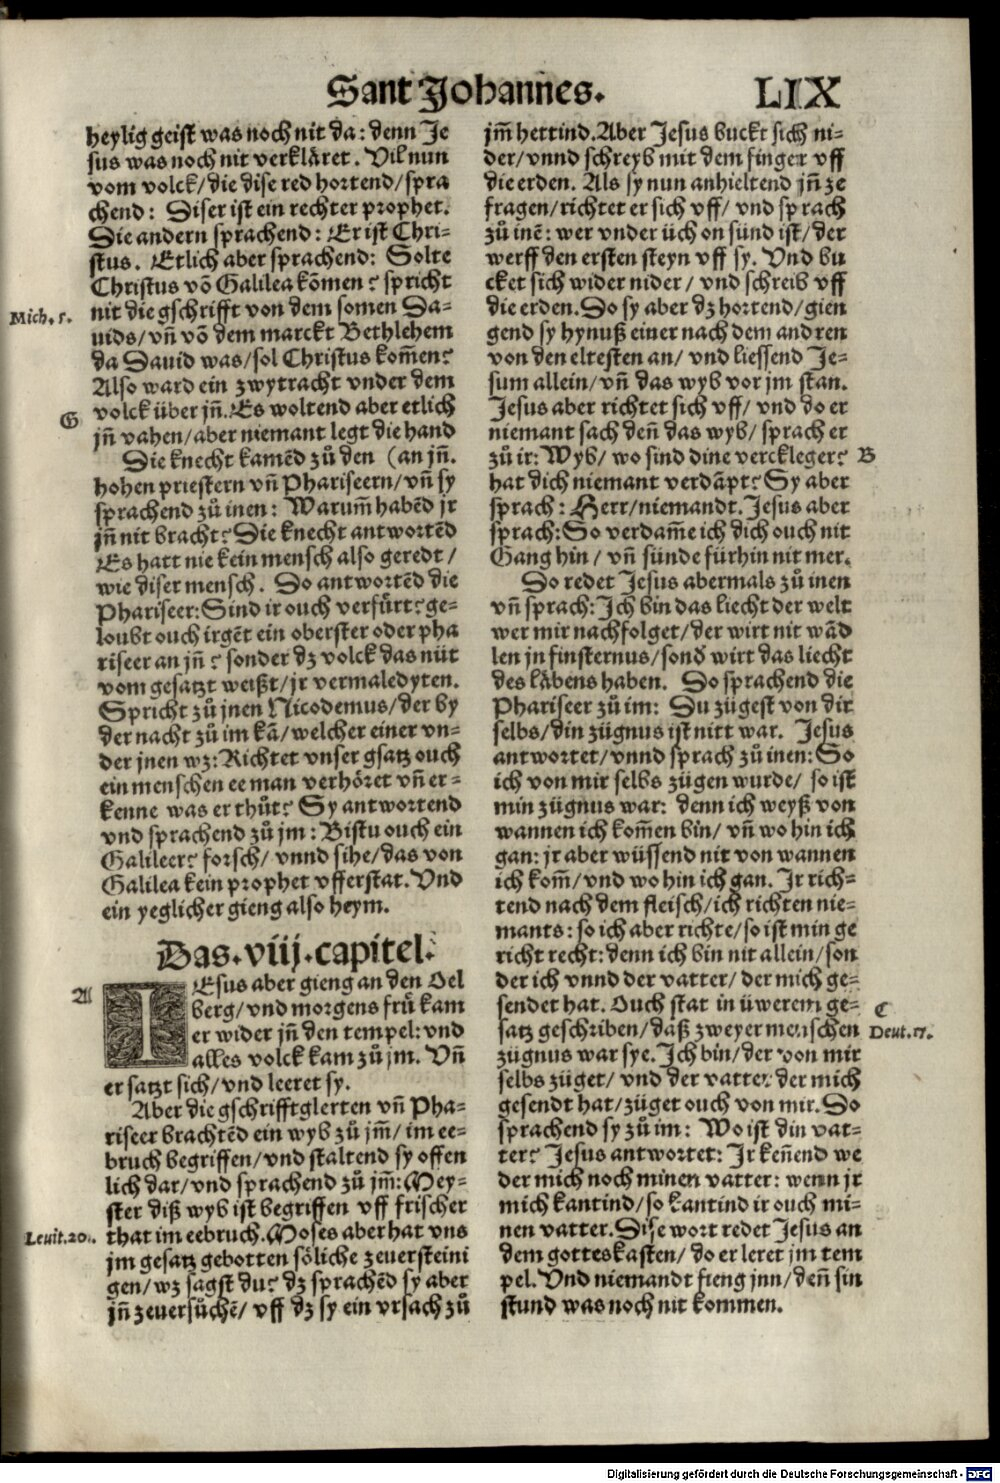 Sant Johannes. LIX
heylig geist was noch nit da: denn Je
sus was noch nit verkläret. Vil nun
vom volck/die dise red hortend/spra
chend: Diser ist ein rechter prophet.
Die andern sprachend: Er ist Chri-
stus. Etlich aber sprachend: Solte
Christus võ Galilea kõmen? spricht
Mich. 5.
nit die gschrifft von dem somen Da-
uids/vñ võ dem marckt Bethlehem
da Dauid was/sol Christus kom̃en?
Also ward ein zwytracht vnder dem
G
volck über jñ. Es woltend aber etlich
jñ vahen/aber niemant legt die hand
Die knecht kamẽd zů den (an jñ.
hohen priestern vñ Phariseern/vñ sy
sprachend zů inen: Warum̃ habẽd jr
jñ nit bracht? Die knecht antwortẽd
Es hatt nie kein mensch also geredt/
wie diser mensch. Do antwortẽd die
Phariseer: Sind ir ouch verfürt? ge-
loubt ouch irgẽt ein oberster oder pha
riseer an jñ? sonder dz volck das nüt
vom gesatzt weißt/jr vermaledyten.
Spricht zů jnen Nicodemus/der by
der nacht zů im kã/welcher einer vn-
der jnen wz: Richtet vnser gsatz ouch
ein menschen ee man verhöret vñ er-
kenne was er thůt? Sy antwortend
vnd sprachend zů jm: Bistu ouch ein
Galileer? forsch/vnnd sihe/das von
Galilea kein prophet vfferstat. Vnd
ein yeglicher gieng also heym.
Das .viij. capitel.
A
IEsus aber gieng an den Oel
berg/vnd morgens frů kam
er wider jñ den tempel: vnd
alles volck kam zů jm. Vñ
er satzt sich/vnd leeret sy.
Aber die gschrifftglerten vñ Pha-
riseer brachtẽd ein wyb zů jm̃/im ee-
bruch begriffen/vnd staltend sy offen
lich dar/vnd sprachend zů jm̃: Mey-
ster diß wyb ist begriffen vff frischer
Leuit. 20.
that im eebruch. Moses aber hat vns
jm gesatz gebotten söliche zeuersteini
gen/wz sagst du? dz sprachẽd sy aber
jñ zeuersůchẽ/vff dz sy ein vrsach zů
jm̃ hettind. Aber Jesus buckt sich ni-
der/vnnd schreyb mit dem finger vff
die erden. Als sy nun anhieltend jñ ze
fragen/richtet er sich vff/vnd sprach
zů inẽ: wer vnder üch on sünd ist/der
werff den ersten steyn vff sy. Vnd bu
cket sich wider nider/vnd schreib vff
die erden. Do sy aber dz hortend/gien
gend sy hynuß einer nach dem andren
von den eltesten an/vnd liessend Je-
sum allein/vñ das wyb vor jm stan.
Jesus aber richtet sich vff/vnd do er
niemant sach deñ das wyb/sprach er
zů ir: Wyb/wo sind dine verckleger? B
hat dich niemant verdãpt? Sy aber
sprach: Herr/niemandt. Jesus aber
sprach: So verdam̃e ich dich ouch nit
Gang hin/vñ sünde fürhin nit mer.
Do redet Jesus abermals zů inen
vñ sprach: Ich bin das liecht der welt
wer mir nachfolget/der wirt nit wãd
len jn finsternus/sonď wirt das liecht
des läbens haben. Do sprachend die
Phariseer zů im: Du zügest von dir
selbs/din zügnus ist nitt war. Jesus
antwortet/vnnd sprach zů inen: So
ich von mir selbs zügen wurde/so ist
min zügnus war: denn ich weyß von
wannen ich kom̃en bin/vñ wo hin ich
gan: jr aber wüssend nit von wannen
ich kom̃/vnd wo hin ich gan. Ir rich-
tend nach dem fleisch/ich richten nie-
mants: so ich aber richte/so ist min ge
richt recht: denn ich bin nit allein/son
der ich vnnd der vatter/der mich ge-
sendet hat. Ouch stat in üwerem ge- C
satz geschriben/daß zweyer menschen Deut. 17.
zügnus war sye. Ich bin/der von mir
selbs züget/vnd der vatter der mich
gesendt hat/züget ouch von mir. Do
sprachend sy zů im: Wo ist din vat-
ter? Jesus antwortet: Ir keñend we
der mich noch minen vatter: wenn jr
mich kantind/so kantind ir ouch mi-
nen vatter. Dise wort redet Jesus an
dem gotteskasten/do er leret jm tem
pel. Vnd niemandt fieng jnn/deñ sin
stund was noch nit kommen.
Digitalisierung gefördert durch die Deutsche Forschungsgemeinschaft - DFG